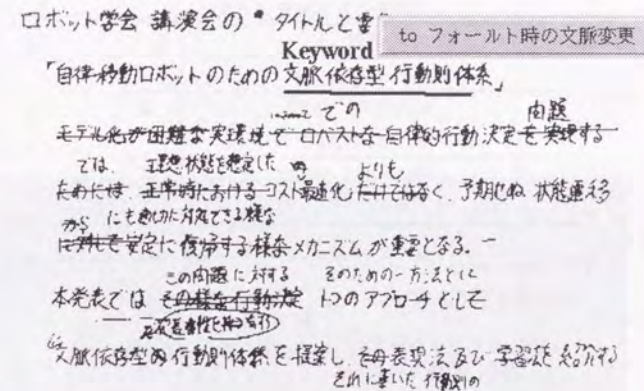 ロボット学会 講演会の • タイトルと要
to フォールト時の文脈変更
Keyword
「自律移動ロボットのための文脈依存型行動則体系」
での
問題
モデル化が困難な実環境で ロバストな 自律的行動決定を実現する
では、 理想状態を想定した の よりも
ためには、正常時における コスト最適化 だけではなく、予期せぬ 状態遷移
から にも適切に対処できる様な
に対して安定に復帰する様なメカニズムが重要となる。
この問題に対する そのための一方法として
本発表では その様な行動決定 1つのアプローチとして
文脈依存型の行動則体系を提案し、その表現法及び学習法を紹介する
それに基いた 行動則の